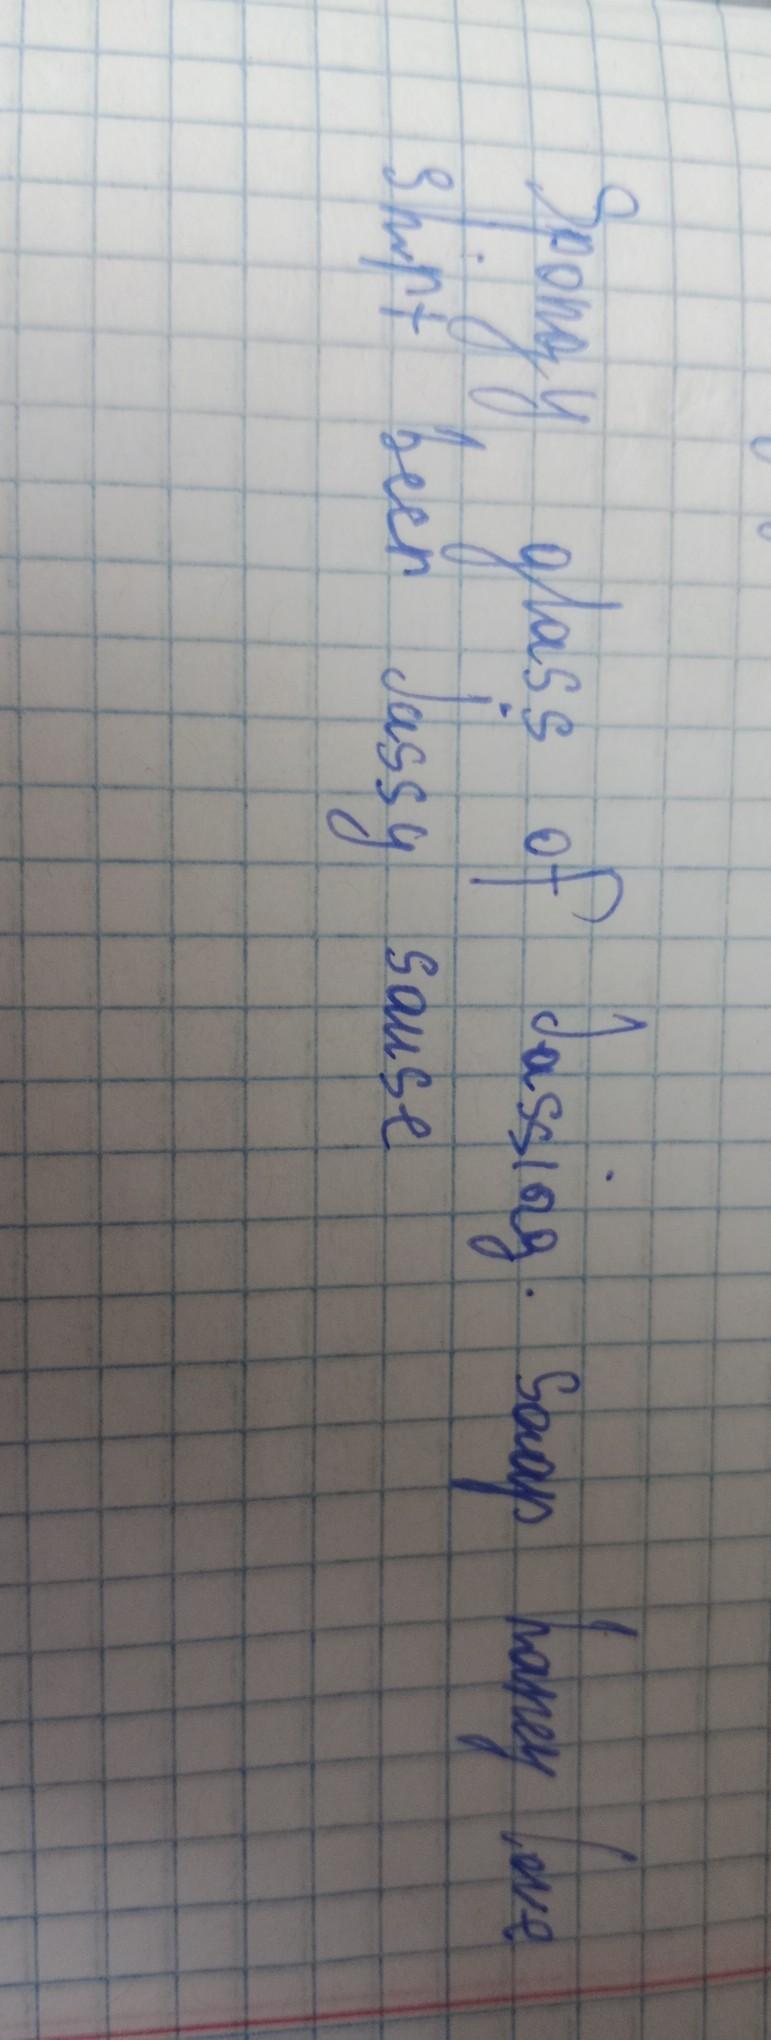 Spongy glass of Jassing. Soap haney love
Shirt beer Jassy sause